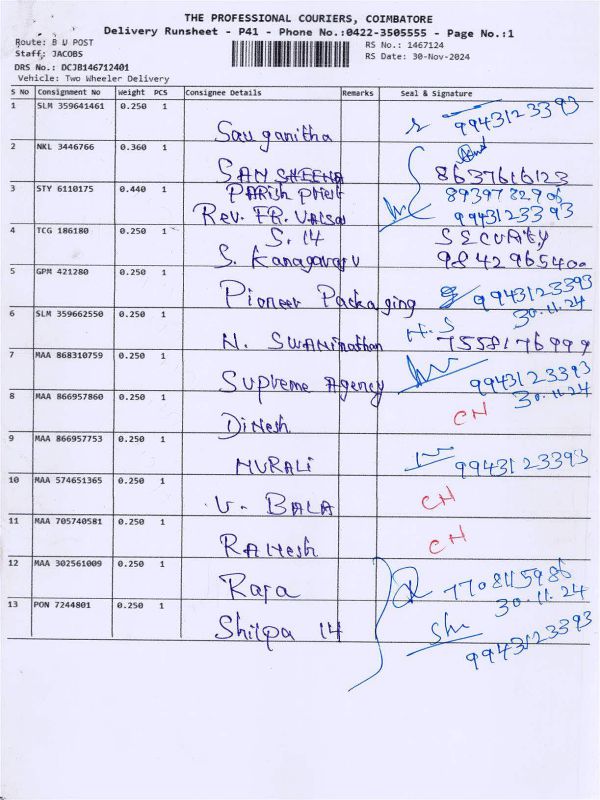 THE PROFESSIONAL COURIERS, COIMBATORE
Delivery Runsheet - P41 - Phone No.:0422-3505555 - Page No.:1
Route: B U POST
Staff: JACOBS
RS No.: 1467124
RS Date: 30-Nov-2024
DRS No.: DCJB146712401
Vehicle: Two Wheeler Delivery
S No Consignment No Weight PCS Consignee Details Remarks Seal & Signature
1 SLM 359641461 0.250 1 9943123393
2 NKL 3446766 0.360 1 SAN SHEENA 8637616123
3 STY 6110175 0.440 1 PARISH Priest 8939782906
Rev. FR. Valsa 9943123393
4 TCG 186180 0.250 1 S. 14 SECURITY
S. Kanagaraju 9842965400
5 GPM 421280 0.250 1 Pioneer Packaging 9943123393
30.11.24
6 SLM 359662550 0.250 1 N. SWAMINathan H.S 7558176999
7 MAA 868310759 0.250 1 Supreme Agency 9943123393
30.11.24
8 MAA 866957860 0.250 1 DiNesh CH
9 MAA 866957753 0.250 1 MURALi 9943123393
10 MAA 574651365 0.250 1 V. BALA CH
11 MAA 705740581 0.250 1 RAMesh CH
12 MAA 302561009 0.250 1 Raja 7708115986
30.11.24
13 PON 7244801 0.250 1 Shilpa 14 Shi
9943123393